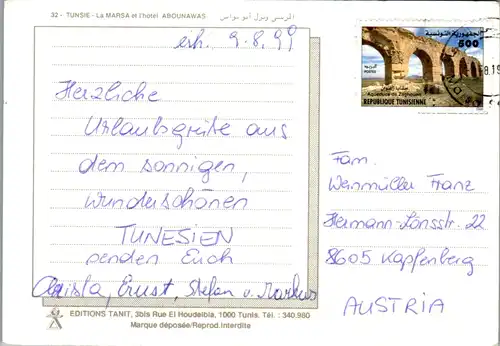 32 - TUNSIE - La MARSA et l'hotel ABOUNAWAS المرسي ونزل أبو نواس
erh. 9.8.99
Herzliche
Urlaubsgrüße aus
dem sonnigen,
wunderschönen
TUNESIEN
senden Euch
Christa, Ernst, Stefan u. Markus
EDITIONS TANIT, 3bis Rue El Houdeibia, 1000 Tunis. Tél. : 340.980
Marque déposée/Reprod.interdite
الجمهورية التونسية
500
البريد
POSTES
حنايا زغوان
Aqueduc de Zaghouan
REPUBLIQUE TUNISIENNE
Fam.
Weinmüller Franz
Hermann-Lönsstr. 22
8605 Kapfenberg
AUSTRIA